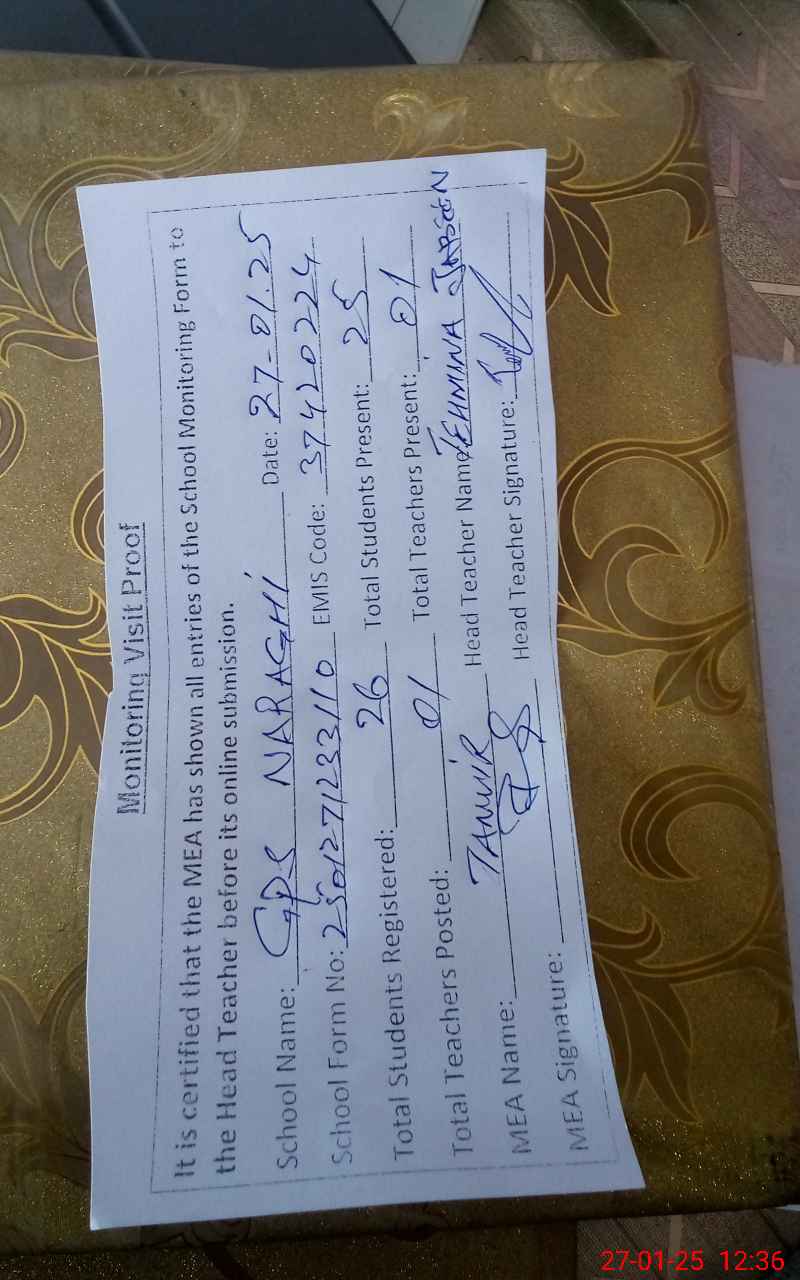 Monitoring Visit Proof
It is certified that the MEA has shown all entries of the School Monitoring Form to
the Head Teacher before its online submission.
School Name: GPS NARAGHI Date: 27-01.25
School Form No: 2501271233110 EMIS Code: 37420224
Total Students Registered: 26 Total Students Present: 25
Total Teachers Posted: 01 Total Teachers Present: 01
MEA Name: TANVIR Head Teacher Name TEHMINA JABEEN
MEA Signature: Head Teacher Signature:
27-01-25 12:36